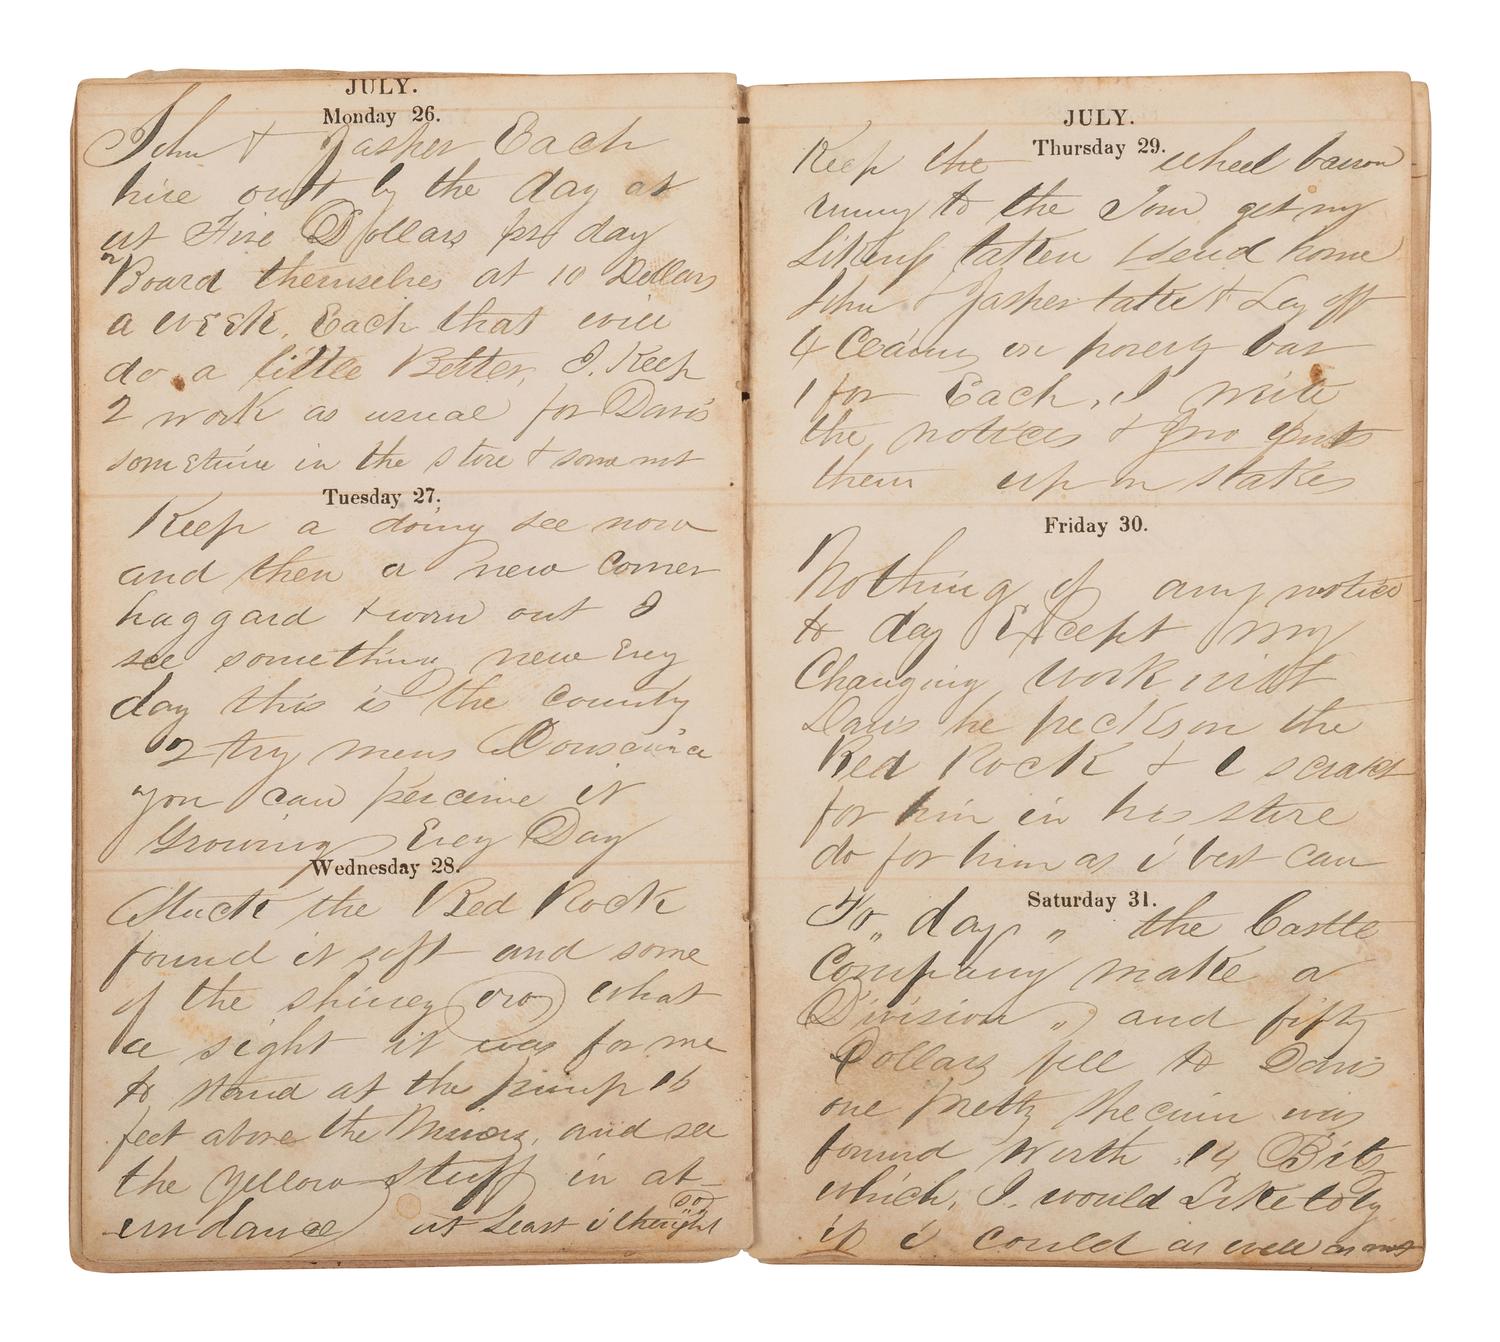 JULY.
Monday 26.
John & Jasher Each
hire out by the day at
at Five Dollars pr day
or
Board themselves at 10 Dollars
a week, Each that will
do a little Better, I. Keep
2 work as usual for Davis
sometime in the store & some not
Tuesday 27.
Keep a doing see now
and then a new Comer
haggard & worn out I
see something new Evry
day this is the county
2 try mens Conscience
you can perceive it
Growing Evry Day
Wednesday 28.
Struck the Red Rock
found it soft and some
of the shiney oro what
a sight it was for me
to stand at the pump 16
feet above the Miners, and see
the yellow stuff in at-
so
undance at Least i thought
JULY.
Thursday 29.
Keep the wheel barrow
runing to the Town get my
Likeness tatken & send home
John & Jasher tatke & Lay off
4 Claims on poverty bar
1 for Each, I write
the notices & Jno puts
them up on stakes
Friday 30.
Nothing of any notice
to day Except my
Changing work with
Davis he pecks on the
Red Rock & I scratch
for him in his store
do for him as i best can
Saturday 31.
To,, day ,, the Castle
Company make a
Division ,, and fifty
Dollars fell to Davis
one pretty specimin was
found Worth 14 Bits
which, I. would Like to by
if i could as well as not